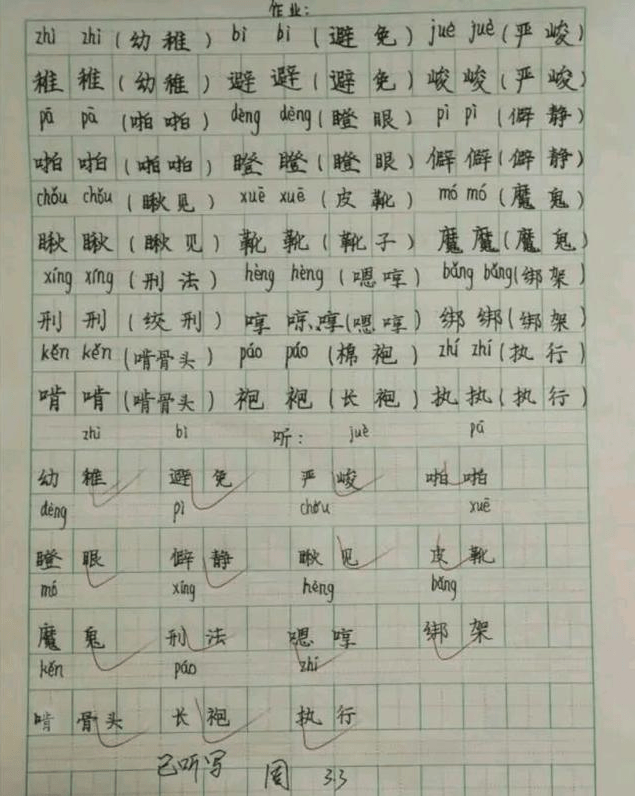 作业:
zhì zhì (幼稚) bì bì (避免) juè juè (严峻)
稚 稚 (幼稚) 避 避 (避免) 峻 峻 (严峻)
pā pā (啪啪) dèng dèng (瞪眼) pì pì (僻静)
啪 啪 (啪啪) 瞪 瞪 (瞪眼) 僻 僻 (僻静)
chǒu chǒu (瞅见) xuē xuē (皮靴) mó mó (魔鬼)
瞅 瞅 (瞅见) 靴 靴 (靴子) 魔 魔 (魔鬼)
xíng xíng (刑法) hèng hèng (嗯哼) bǎng bǎng (绑架)
刑 刑 (绞刑) 哼 哼 (嗯哼) 绑 绑 (绑架)
kěn kěn (啃骨头) páo páo (棉袍) zhí zhí (执行)
啃 啃 (啃骨头) 袍 袍 (长袍) 执 执 (执行)
zhì bì 听: juè pā
幼稚 避免 严峻 啪啪
dèng pì chǒu xuē
瞪眼 僻静 瞅见 皮靴
mó xíng hèng bǎng
魔鬼 刑法 嗯哼 绑架
kěn páo zhí
啃骨头 长袍 执行
已听写 周 3.3